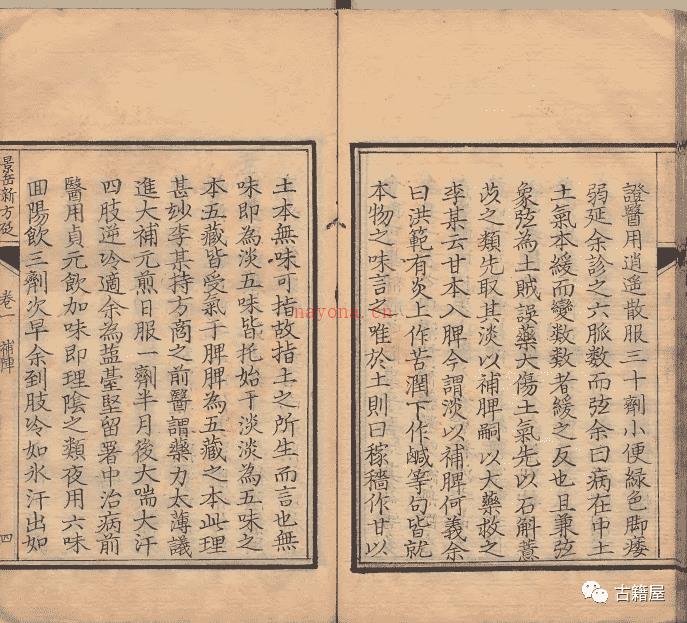 證醫用逍遙散服三十劑小便綠色脚痿
弱延余診之六脈數而弦余曰病在中土
土氣本緩而變數數者緩之反也且兼弦
象弦為土賊誤藥大傷土氣先以石斛薏
苡之類先取其淡以補脾嗣以大藥救之
李某云甘本入脾今謂淡以補脾何義余
曰洪範有炎上作苦潤下作鹹等句皆就
本物之味言之唯於土則曰稼穡作甘以
土本無味可指故指土之所生而言也無
味即為淡五味皆托始于淡淡為五味之
本五藏皆受氣于脾脾為五藏之本此理
甚妙李某持方商之前醫謂藥力太薄議
進大補元煎日服一劑半月後大喘大汗
四肢逆冷適余為盐臺堅留署中治病前
醫用貞元飲加味即理陰之類夜用六味
囬陽飲三劑次早余到肢冷如氷汗出如
景岳新方砭
卷一
補陣
四
nayona.cn
古籍屋